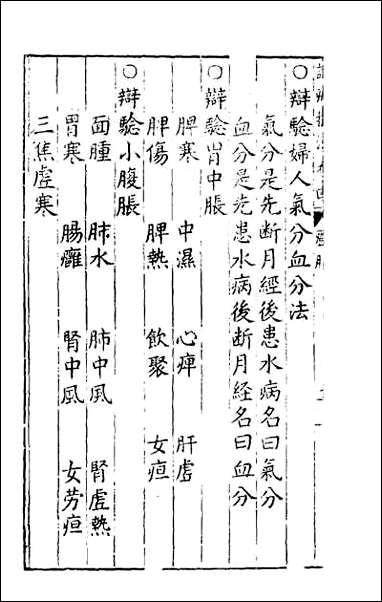 ○辯驗婦人氣分血分法
氣分是先断月經後患水病名曰氣分
血分是先患水病後断月经名曰血分
○辯驗胃中脹
脾寒 中濕 心痺 肝虛
脾傷 脾熱 飲聚 女疸
○辯驗小腹脹
面腫 肺水 肺中風 腎虛熱
胃寒 腸癰 腎中風 女劳疸
三焦虛寒